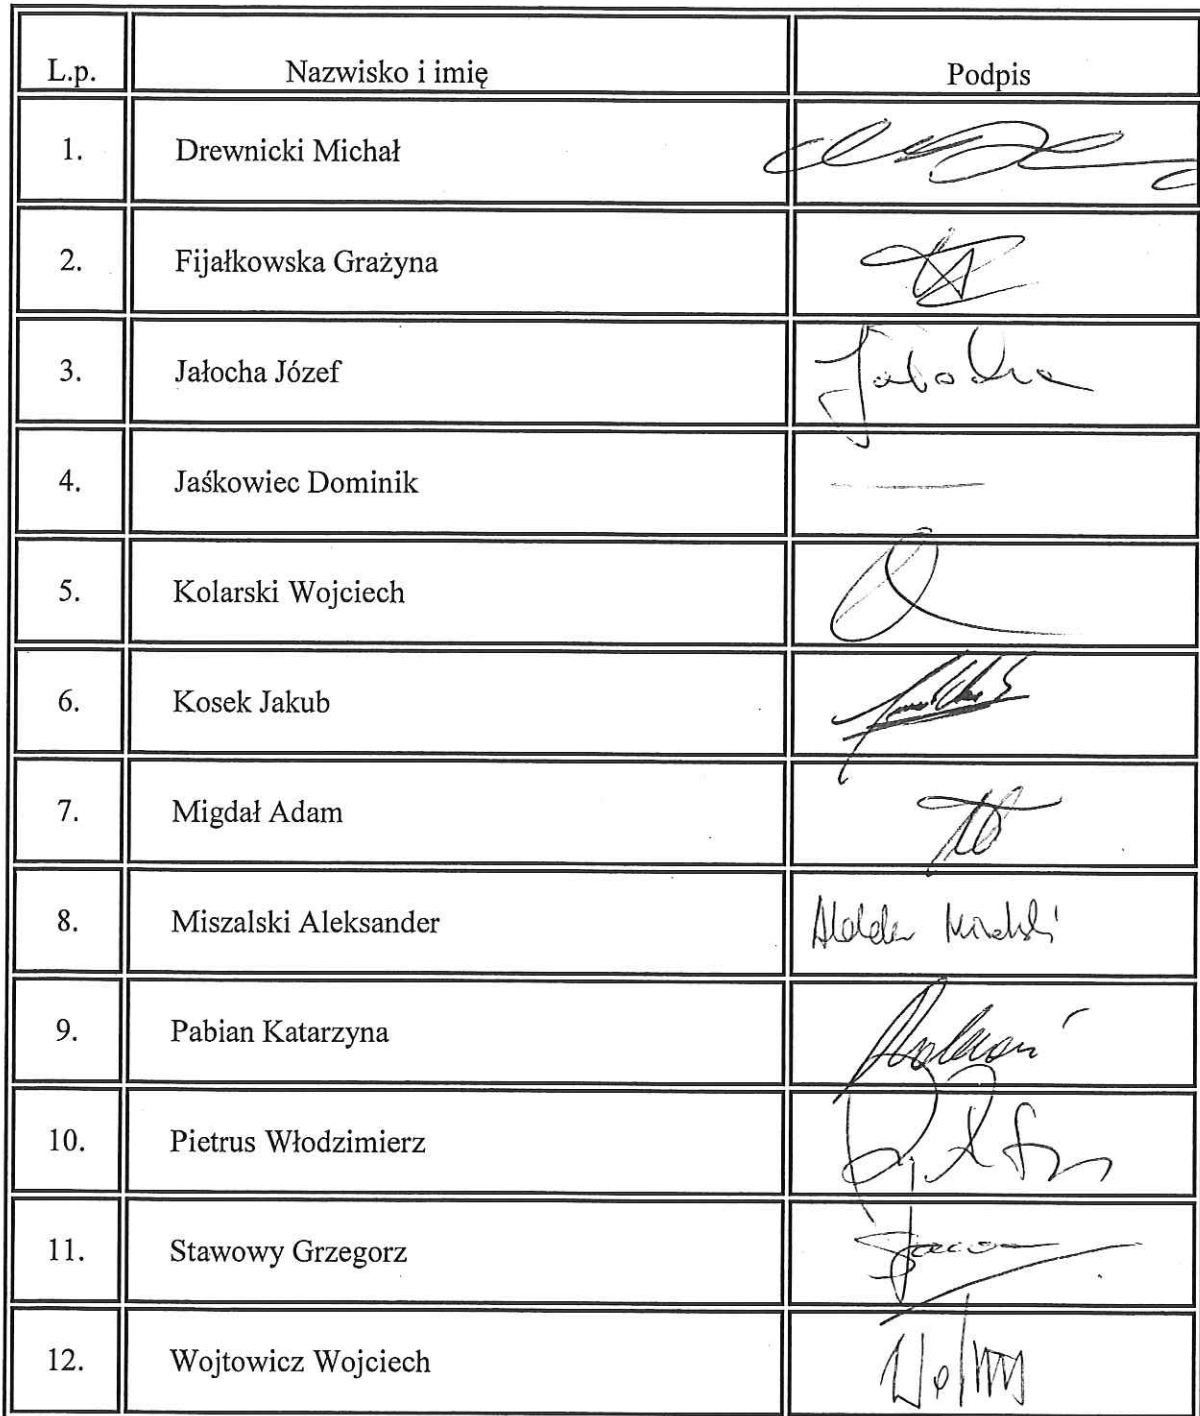 L.p. Nazwisko i imię Podpis
1. Drewnicki Michał
2. Fijałkowska Grażyna
3. Jałocha Józef Jałocha
4. Jaśkowiec Dominik —
5. Kolarski Wojciech
6. Kosek Jakub
7. Migdał Adam
8. Miszalski Aleksander
9. Pabian Katarzyna
10. Pietrus Włodzimierz
11. Stawowy Grzegorz
12. Wojtowicz Wojciech